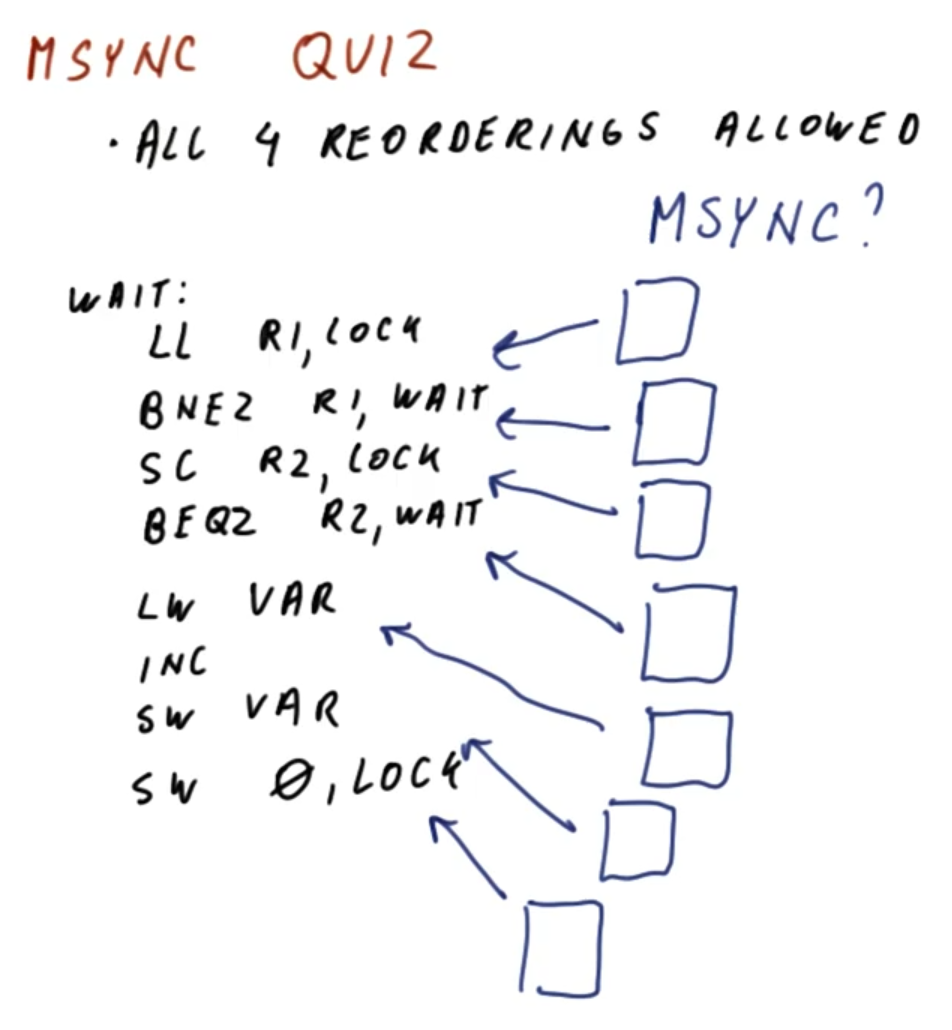 MSYNC QUIZ
· ALL 4 REORDERINGS ALLOWED
MSYNC?
WAIT:
LL R1, LOCK
BNEZ R1, WAIT
SC R2, LOCK
BEQZ R2, WAIT
LW VAR
INC
SW VAR
SW 0, LOCK